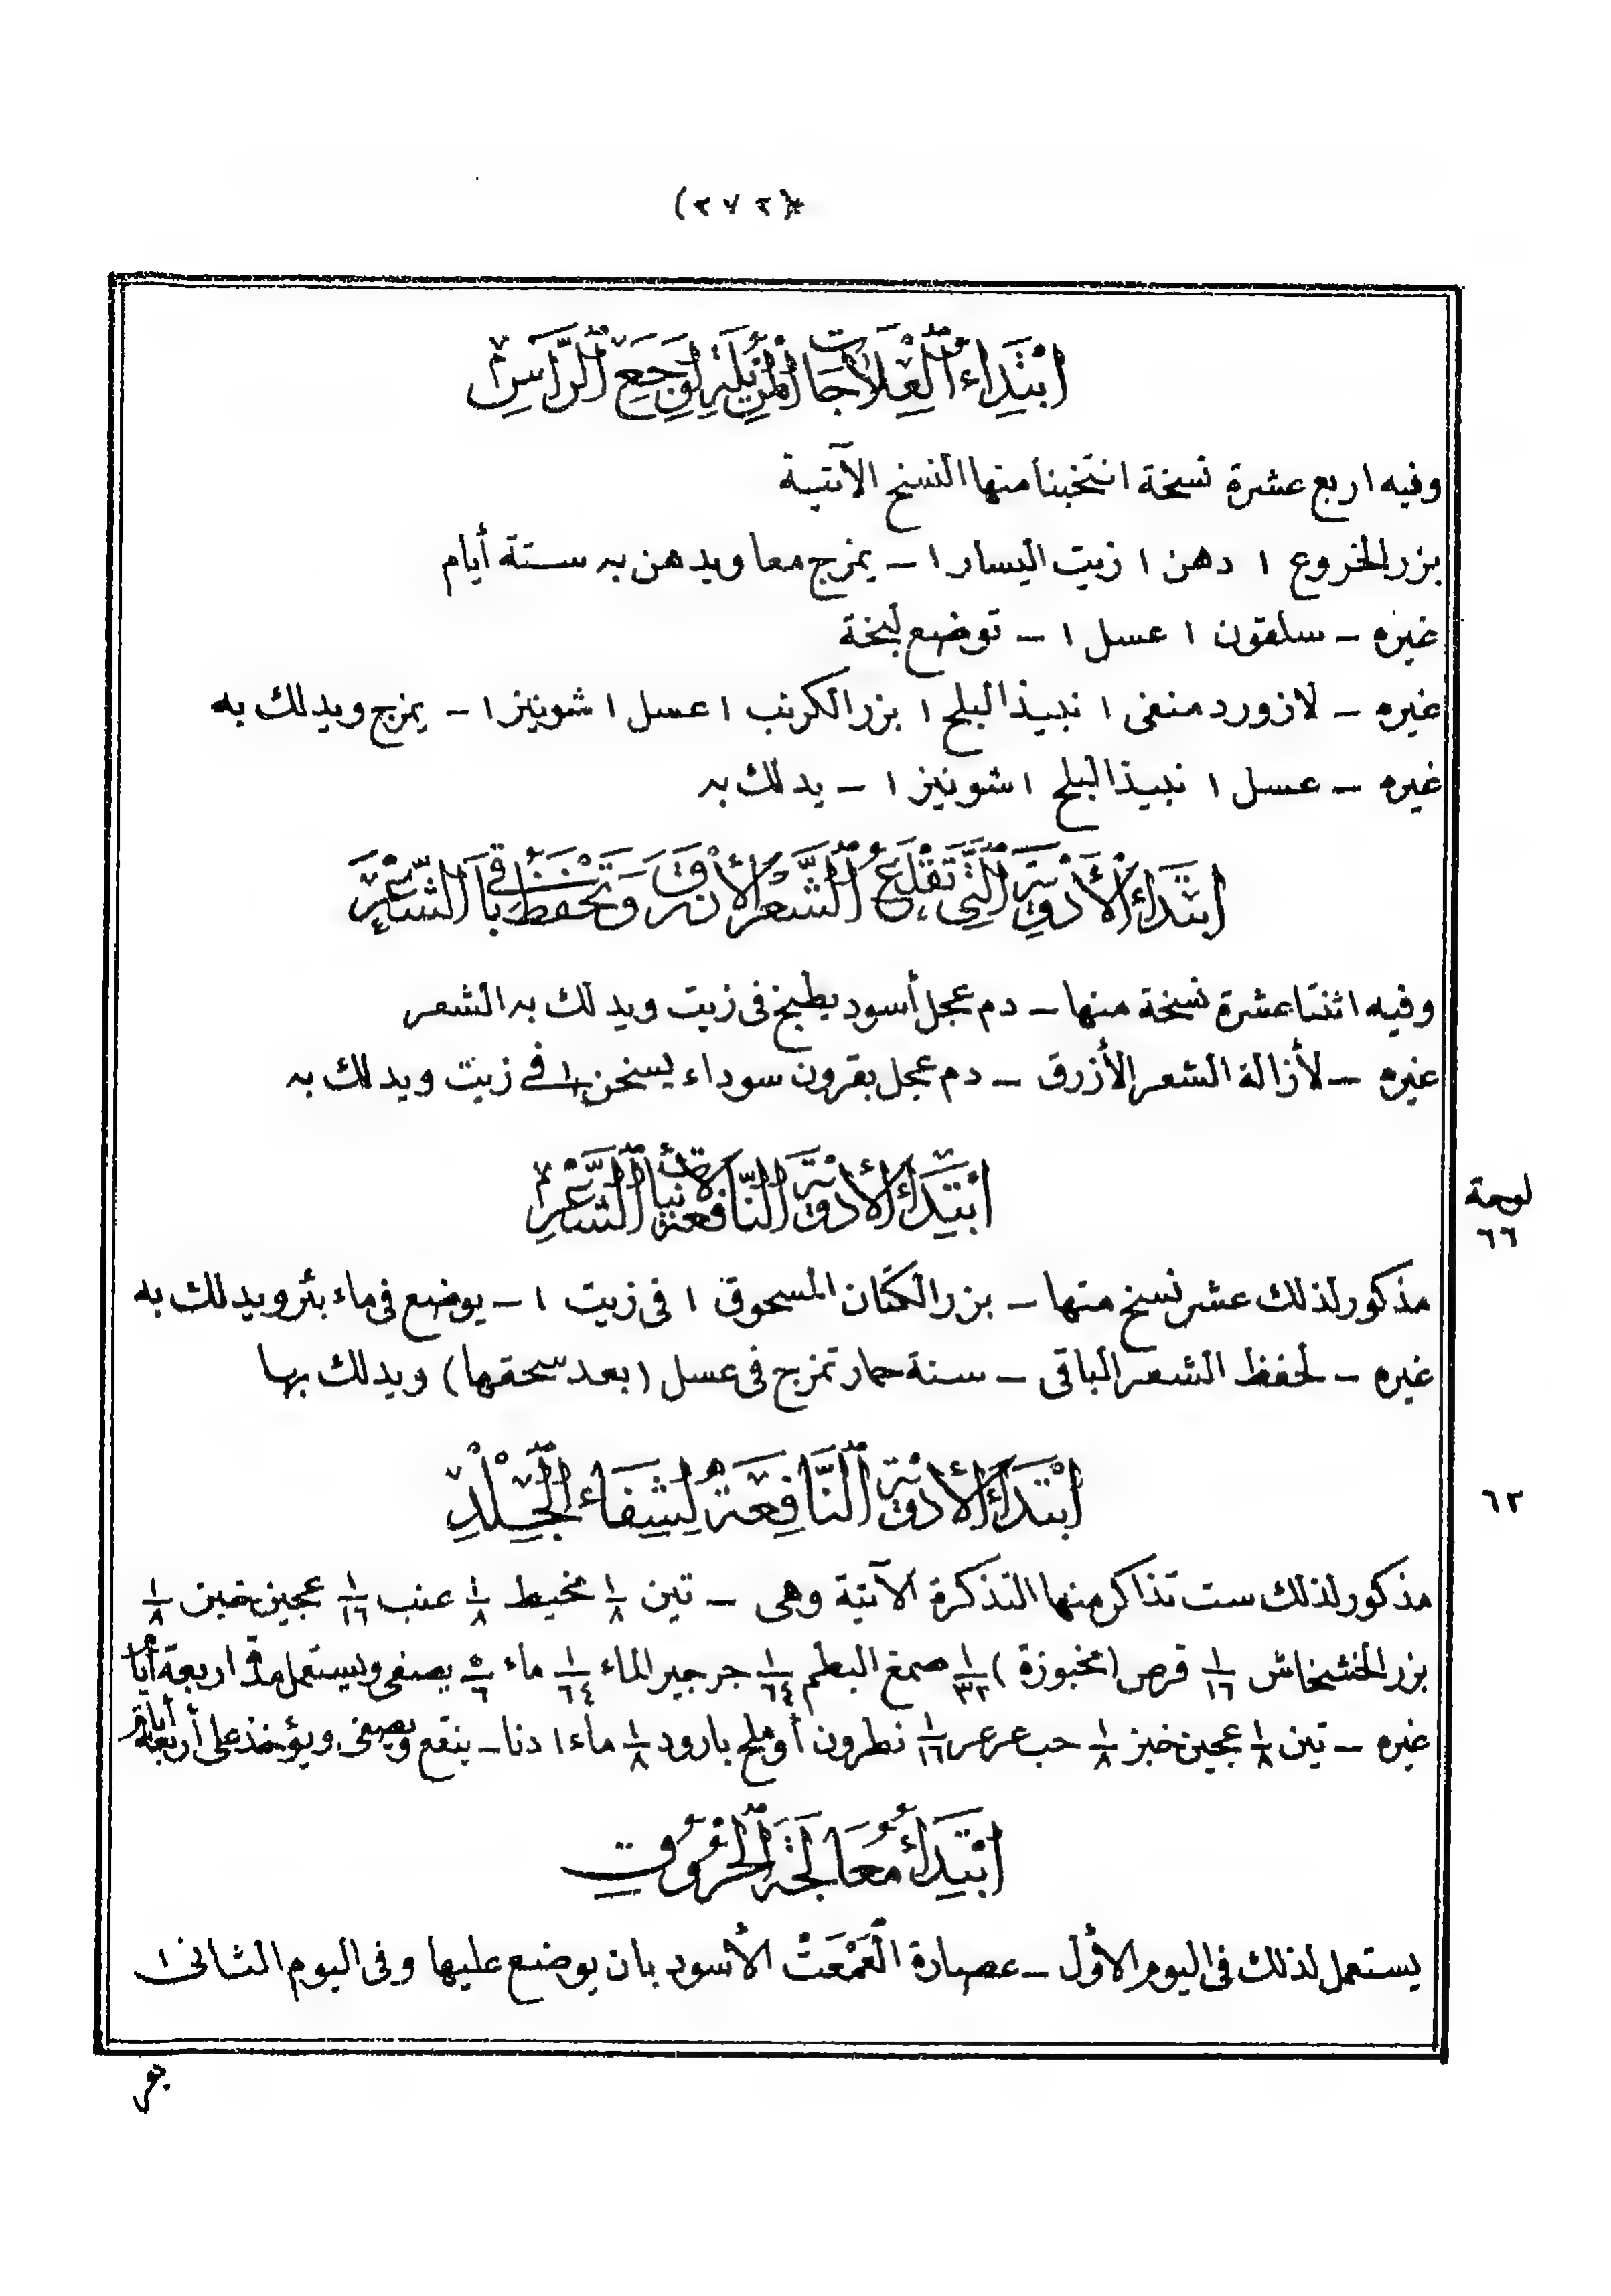 (٢٧٢)
ابْتِدَاءُ الْعِلَاجَاتِ الْمُزِيلَةِ لِوَجَعِ الرَّاسِ
وفيه اربع عشرة نسخة انتخبنا منها النسخ الآتية
بزر الخروع ١ دهن ١ زيت اليسار ١ – يمزج معا ويدهن به ستة أيام
غيره – سلقون ١ عسل ١ – توضع لبخة
غيره – لازورد منقى ١ نبيذ البلح ١ بزر الكرنب ١ عسل ١ شونيز ١ – يمزج ويدلك به
غيره – عسل ١ نبيذ البلح ١ شونيز ١ – يدلك به
ابْتِدَاءُ الْأَدْوِيَةِ الَّتِي تَقْلَعُ الشَّعْرَ الْأَزْرَقَ وَتَحْفَظُ بَاقِي الشَّعْرِ
وفيه اثنتا عشرة نسخة منها – دم عجل أسود يطبخ في زيت ويدلك به الشعر
غيره – لأزالة الشعر الأزرق – دم عجل بقرون سوداء يسخن ١ في زيت ويدلك به
ابْتِدَاءُ الْأَدْوِيَةِ النَّافِعَةِ لِإِنْبَاتِ الشَّعْرِ
لوحة
٦٦
مذكور لذلك عشر نسخ منها – بزر الكتان المسحوق ١ في زيت ١ – يوضع في ماء بئر ويدلك به
غيره – لحفظ الشعر الباقى – سنة حمار تمزج في عسل (بعد سحقها) ويدلك بها
ابْتِدَاءُ الْأَدْوِيَةِ النَّافِعَةِ لِشِفَاءِ الْجِلْدِ
٦٢
مذكور لذلك ست تذاكر منها التذكرة الآتية وهى – تين ١/٨ مخيط ١/٨ عنب ١/١٦ عجين خبز ١/٨
بزر الخشخاش ١/١٦ قرص (مخبوزة) ١/٣٢ صمغ البطم ١/٦٤ جرجير الماء ١/٦٤ ماء ٥/٦ يصفى ويستعمل مدة اربعة أيام
غيره – تين ١/٨ عجين خبز ١/٨ حب عرعر ١/١٦ نطرون أو ملح بارود ١/٨ ماء ١ دنا – ينقع ويصفى ويؤخذ على أربعة أيام
ابْتِدَاءُ مُعَالَجَةِ الْحُرُوقِ
يستعمل لذلك في اليوم الأول – عصارة الْعَمْعَتْ الأسود بان يوضع عليها وفى اليوم الثانى ١
بعر